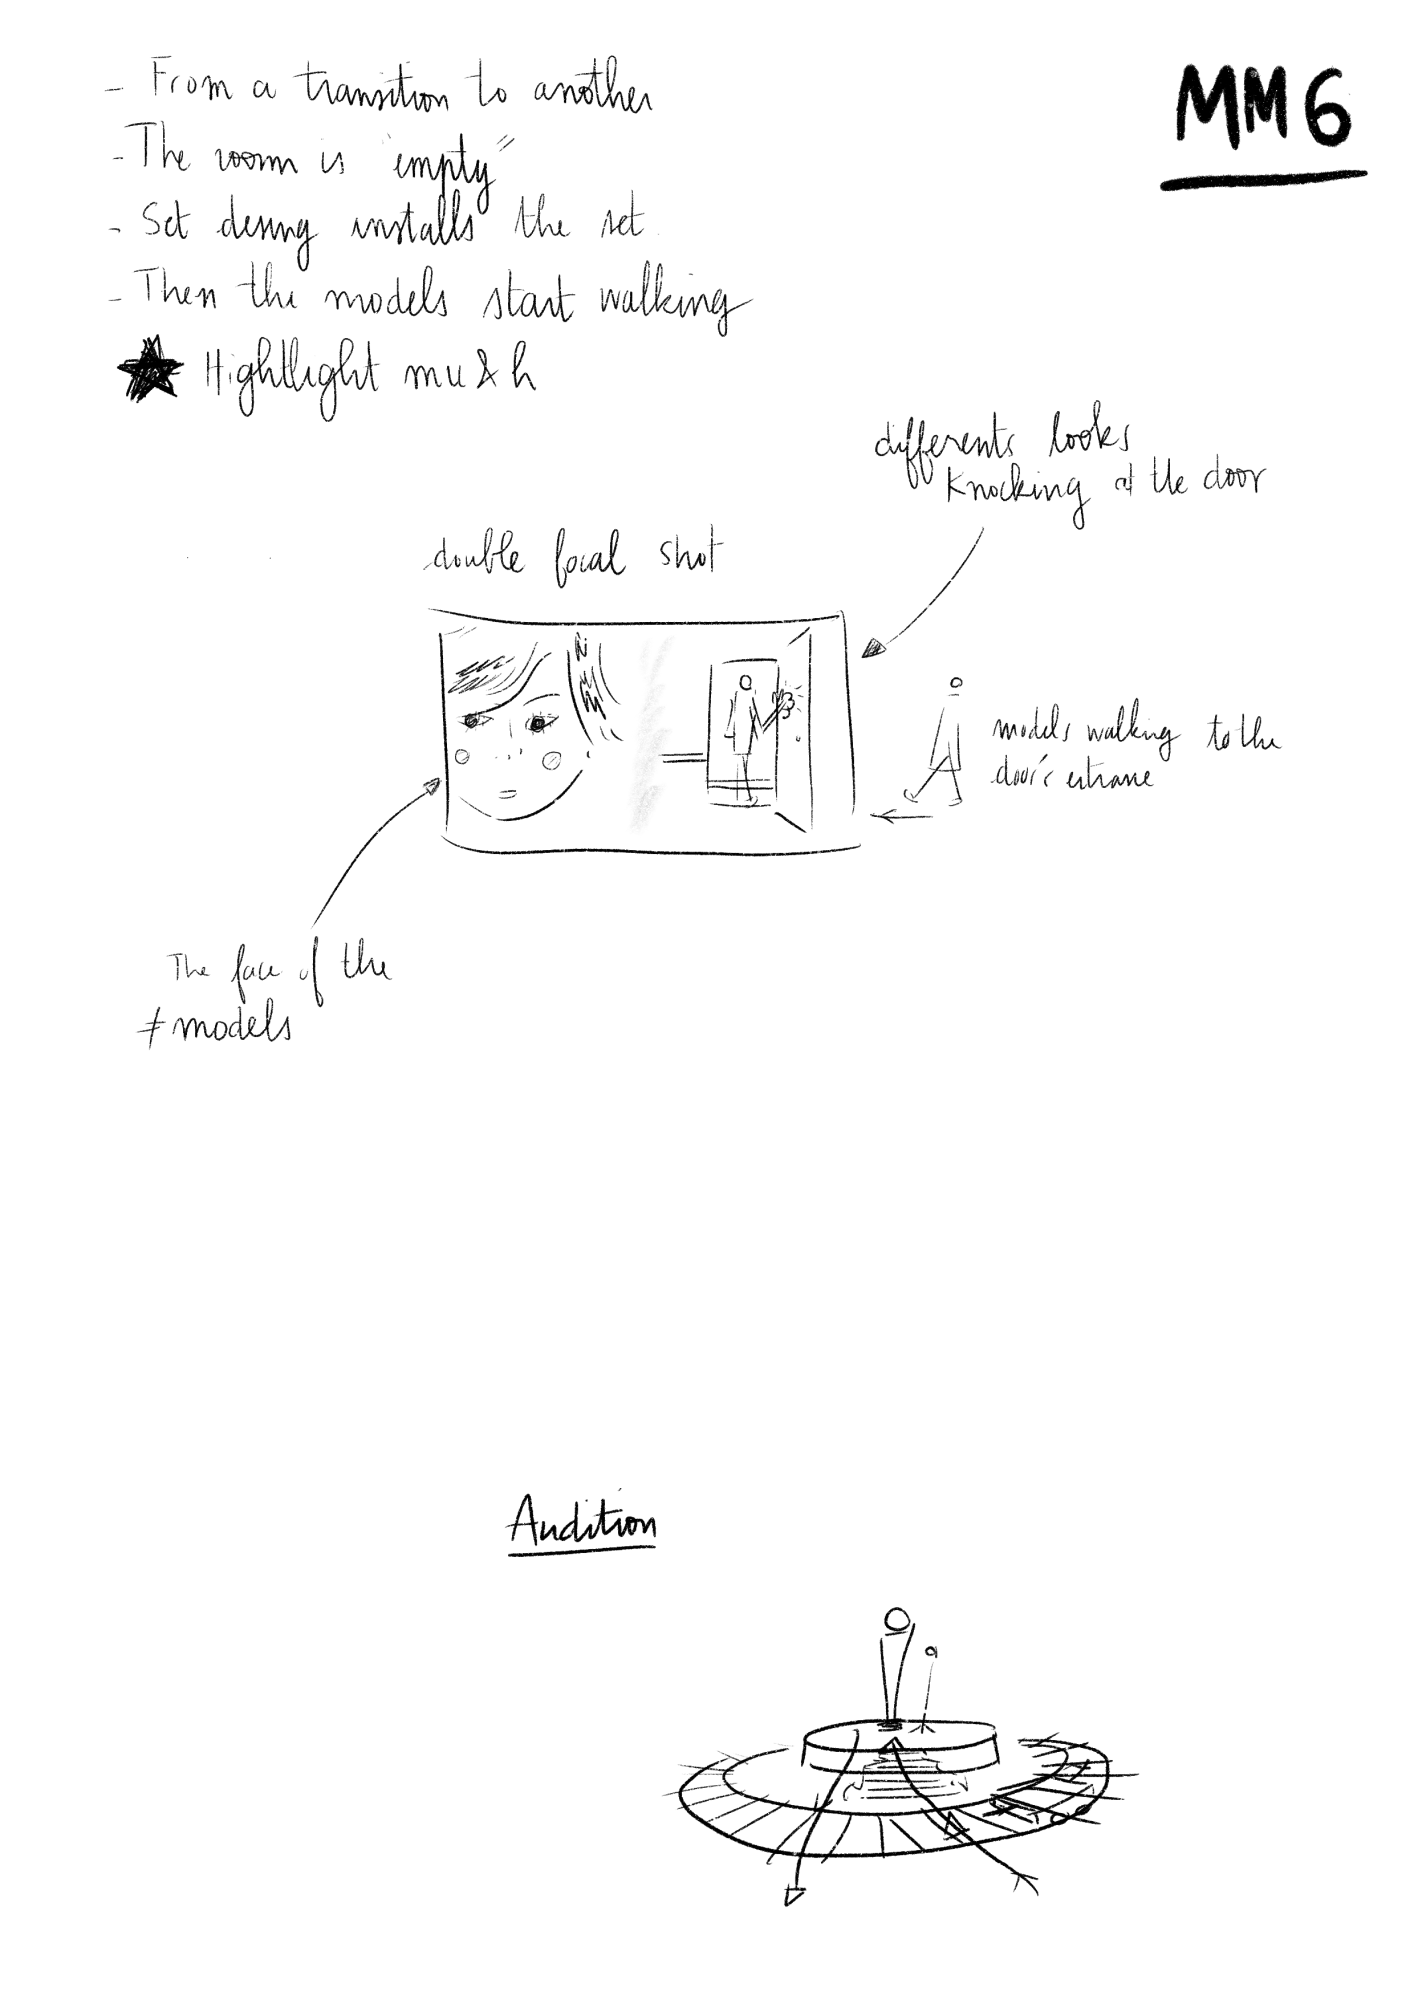 MM6
- From a transition to another
- The room is "empty"
- Set desing installs the set
- Then the models start walking
★ Hightlight mu & h
differents looks
Knocking at the door
double focal shot
models walking to the
door's entrane
The face of the
≠ models
Audition